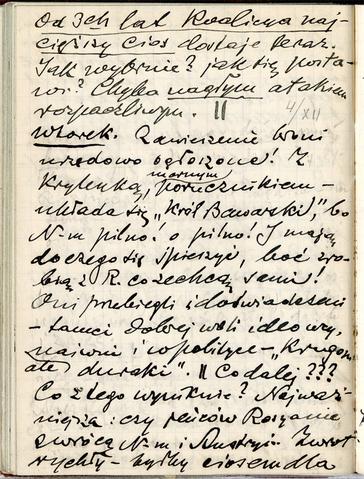 Od 3ch lat Koalicya naj-
cięższy cios dostaje teraz.
Jak wybrnie? jak się posta-
wi? Chyba nagłym atakiem
rozpaczliwym. || 4/XII
Wtorek. Zawieszenie broni
urzędowo ogłoszone! Z
Krylenką, marnym porucznikiem -
układa się „Król Bawarski", bo
N-m pilno! o pilno! I mają
do czego się śpieszyć, boć zro-
bią z R. co zechcą sami!
Oni przebiegli i doświadczeni
- tamci dobrej woli ideowcy,
naiwni i w polityce - „Kругом
ale duraki". || Co dalej???
Co z tego wyniknie? Najważ-
niejsza: czy jeńców Rosyanie
zwrócą N-m i Austryi. Zwrot
rychły - byłby ciosem dla